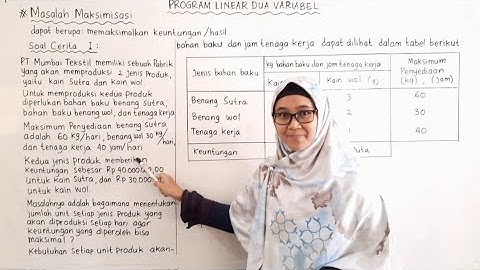 PROGRAM LINEAR DUA VARIABEL
* Masalah Maksimisasi
dapat berupa: memaksimalkan keuntungan/hasil
Soal Cerita I :
PT. Mumbai Tekstil memiliki sebuah Pabrik
yang akan memproduksi 2 jenis Produk,
yaitu kain Sutra dan kain Wol
Untuk memproduksi kedua Produk
diperlukan bahan baku benang Sutra,
bahan baku benang wol, dan tenaga kerja
Maksimum Penyediaan benang sutra
adalah 60 kg/hari, benang wol 30 kg/
hari,
dan tenaga kerja 40 jam/hari
Kedua jenis Produk memberikan
keuntungan Sebesar Rp 40.000.000,00
Untuk kain Sutra, dan Rp 30.000.
untuk kain wol.
Masalahnya adalah bagaimana menentukan
jumlah unit setiap jenis Produk yang
akan diproduksi setiap hari agar
keuntungan yang diperoleh bisa
maksimal ?
Kebutuhan Setiap unit produk akan-
bahan baku dan jam tenaga kerja dapat dilihat dalam tabel berikut
Jenis bahan baku
kg bahan baku dan jam tenaga kerja
Maksimum
Penyediaan
(kg), (jam)
Kain
Kain wol
Benang Sutra
3
60
Benang Wol
2
30
Tenaga Kerja
40
Keuntungan
Juta